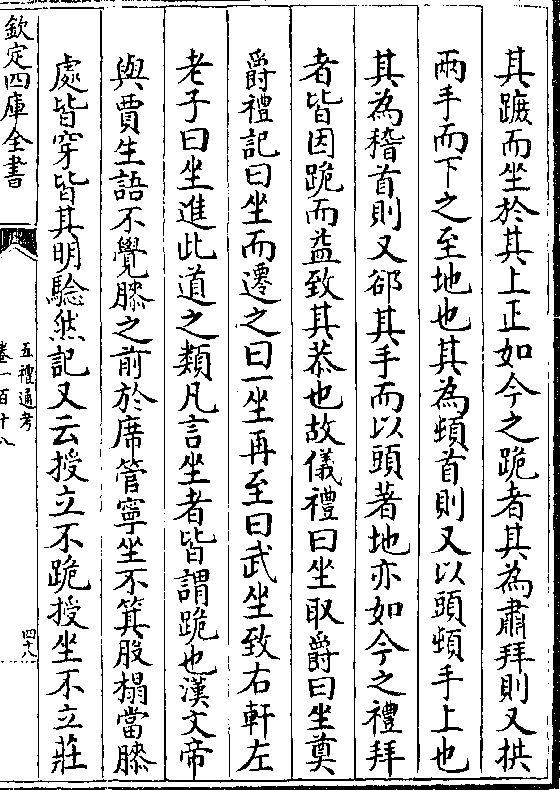 其蹠而坐於其上正如今之跪者其為肅拜則又拱
兩手而下之至地也其為頓首則又以頭頓手上也
其為稽首則又郤其手而以頭著地亦如今之禮拜
者皆因跪而益致其恭也故儀禮曰坐取爵曰坐奠
爵禮記曰坐而遷之曰一坐再至曰武坐致右軒左
老子曰坐進此道之類凡言坐者皆謂跪也漢文帝
與賈生語不覺膝之前於席管寧坐不箕股榻當膝
處皆穿皆其明驗然記又云授立不跪授坐不立莊
欽定四庫全書
五禮通考
卷一百十八
四十八